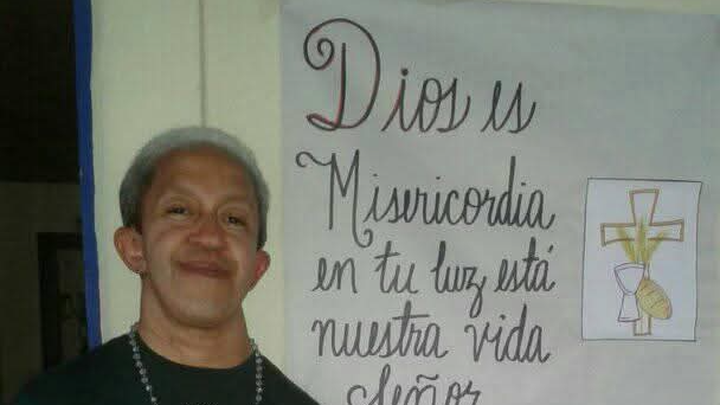 Dios es
Misericordia
en tu luz está
nuestra vida
Señor